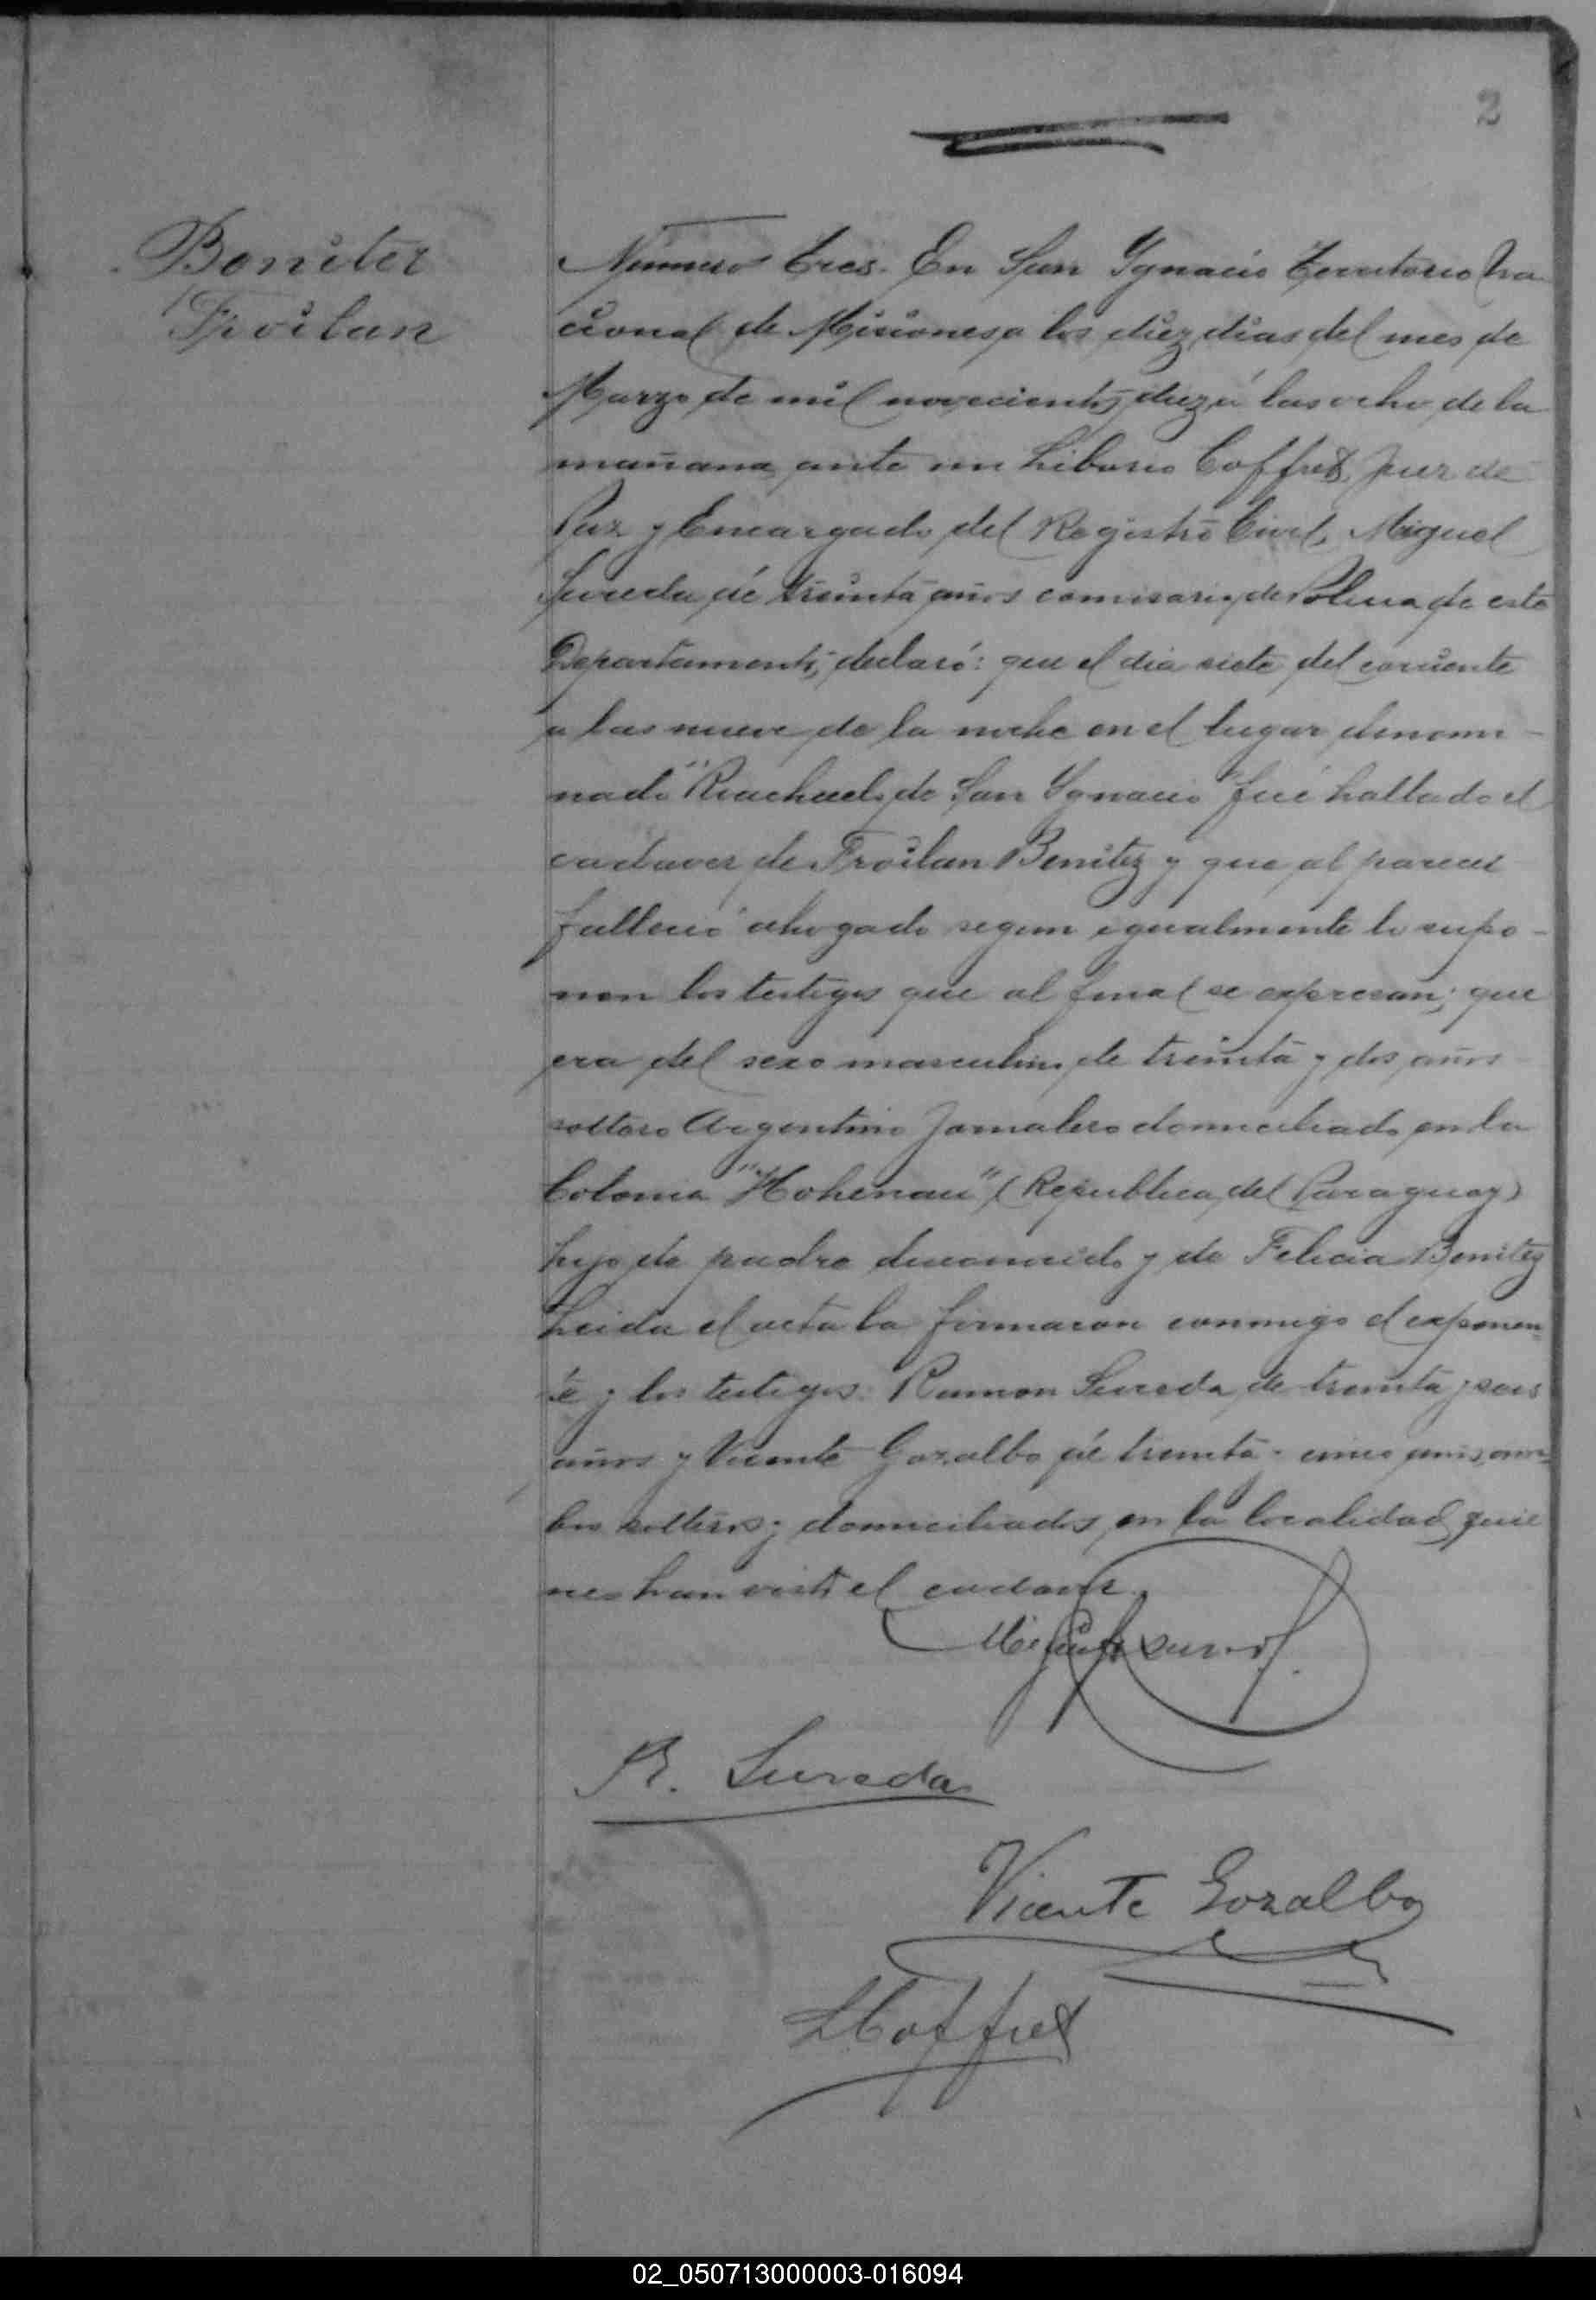 2
Benitez
Froilan
Número tres. En San Ygnacio Territorio Na
cional de Misiones, a los diez dias del mes de
Marzo de mil novecientos diez á las ocho de la
mañana, ante mi Liborio Coffret, Juez de
Paz y Encargado del Registro Civil, Miguel
Sureda de treinta años comisario de Policia de este
Departamento, declaró: que el dia siete del corriente
a las nueve de la noche en el lugar denomi-
nado "Riachuelo de San Ygnacio" fué hallado el
cadaver de Froilan Benitez y que al parecer
falleció ahogado segun igualmente lo supo-
nen los testigos que al final se expresan; que
era del sexo masculino de treinta y dos años
soltero Argentino Jornalero domiciliado en la
Colonia "Hohenau" (Republica del Paraguay)
hijo de padre desconocido y de Felicia Benitez
Leida el acta la firmaron conmigo el exponen-
te y los testigos: Ramon Sureda, de treinta y seis
años y Vicente Gozalbo de treinta y cinco años, am-
bos solteros y domiciliados en la localidad, quie
nes han visto el cadaver.
Miguel Sureda
R. Sureda
Vicente Gozalbo
L Coffret
02_050713000003-016094